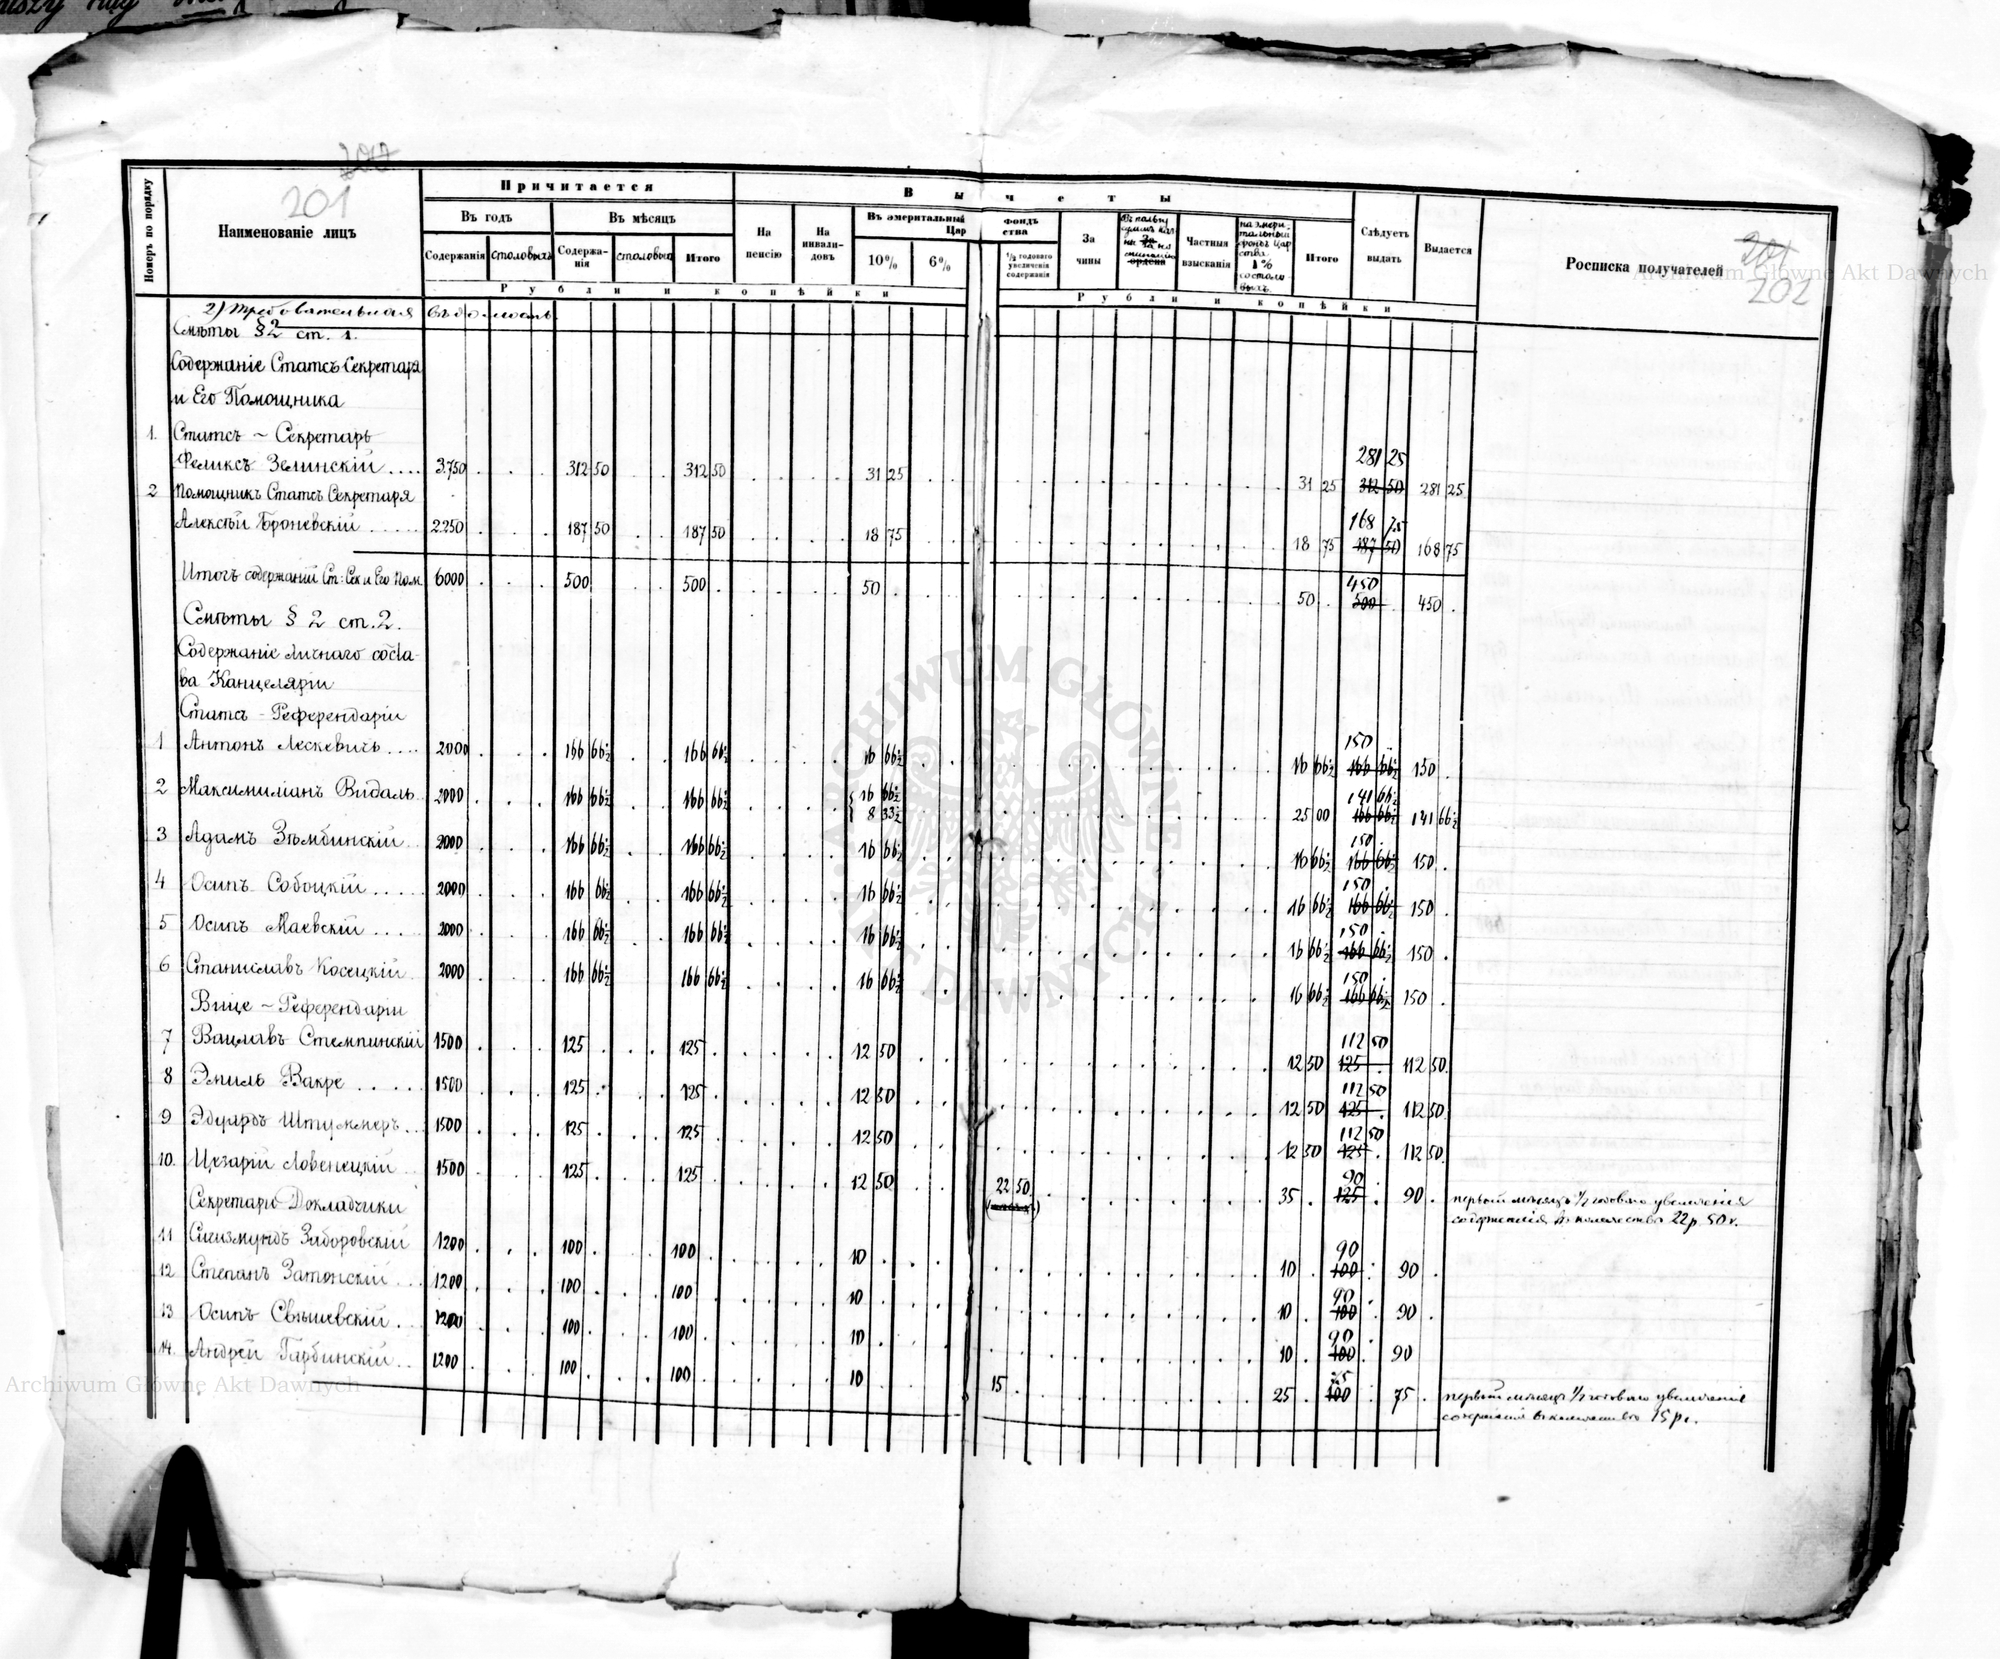 201
Номеръ по порядку
Наименованіе лицъ
Причитается
Вычеты
Въ годъ
Въ мѣсяцъ
Содержанія
столовыхъ
Содержа-
нія
столовыхъ
Итого
На
пенсію
На
инвали-
довъ
Въ эмеритальный фондъ
Царства
10%
6%
1/2 годоваго
увеличенія
содержанія
За
чины
ордена
Частныя
взысканія
на эмери-
тальный
фондъ Цар
ства
1%
со столо-
выхъ
Итого
Слѣдуетъ
выдать
Выдается
Росписка получателей
201
202
Рубли и копѣйки
Рубли и копѣйки
2) Требовательная вѣдомость
Смѣты § 2 ст. 1.
Содержаніе Статсъ Секретаря
и Его Помощника
1. Статсъ - Секретарь
Феликсъ Зелинскій .... 3.750 312 50 312 50 31 25 31 25 281 25 312 50 281 25
2 Помощникъ Статсъ Секретаря
Алексѣй Броневскій ..... 2250 187 50 187 50 18 75 18 75 168 75 187 50 168 75
Итогъ содержаній Ст: Сек и Его Пом. 6000 500 500 50 50 450 500 450
Смѣты § 2 ст. 2.
Содержаніе личнаго соста-
ва Канцеляріи
Статсъ - Референдаріи
1 Антонъ Лескевичъ .... 2000 166 66½ 166 66½ 16 66½ 16 66½ 150 166 66½ 150
2 Максимиліанъ Видаль 2000 166 66½ 166 66½ 16 66½ 8 33½ 25 00 141 66½ 166 66½ 141 66½
3 Адамъ Зѣмбинскій 2000 166 66½ 166 66½ 16 66½ 16 66½ 150 166 66½ 150
4 Осипъ Собоцкій .... 2000 166 66½ 166 66½ 16 66½ 16 66½ 150 166 66½ 150
5 Осипъ Маевскій .... 2000 166 66½ 166 66½ 16 66½ 16 66½ 150 166 66½ 150
6 Станиславъ Косецкій 2000 166 66½ 166 66½ 16 66½ 16 66½ 150 166 66½ 150
Вице - Референдаріи
7 Вацлавъ Стемпинскій 1500 125 125 12 50 12 50 112 50 125 112 50
8 Эмиль Вакре ..... 1500 125 125 12 50 12 50 112 50 125 112 50
9 Эдуардъ Штуммеръ .. 1500 125 125 12 50 12 50 112 50 125 112 50
10. Цезарій Ловенецкій 1500 125 125 12 50 22 50 35 90 125 90 первый мѣсяцъ 1/2 годоваго увеличенія
содержанія въ количествѣ 22 р. 50 к.
Секретари-Докладчики
11 Сигизмундъ Заборовскій 1200 100 100 10 10 90 100 90
12 Степанъ Затонскій ... 1200 100 100 10 10 90 100 90
13 Осипъ Свѣшевскій . 1200 100 100 10 10 90 100 90
14. Андрей Гарбинскій .. 1200 100 100 10 15 25 75 100 75 первый мѣсяцъ 1/2 годоваго увеличенія
содержанія въ количествѣ 15 р.
Archiwum Główne Akt Dawnych
Archiwum Główne Akt Dawnych
ARCHIWUM GŁÓWNE AKT DAWNYCH